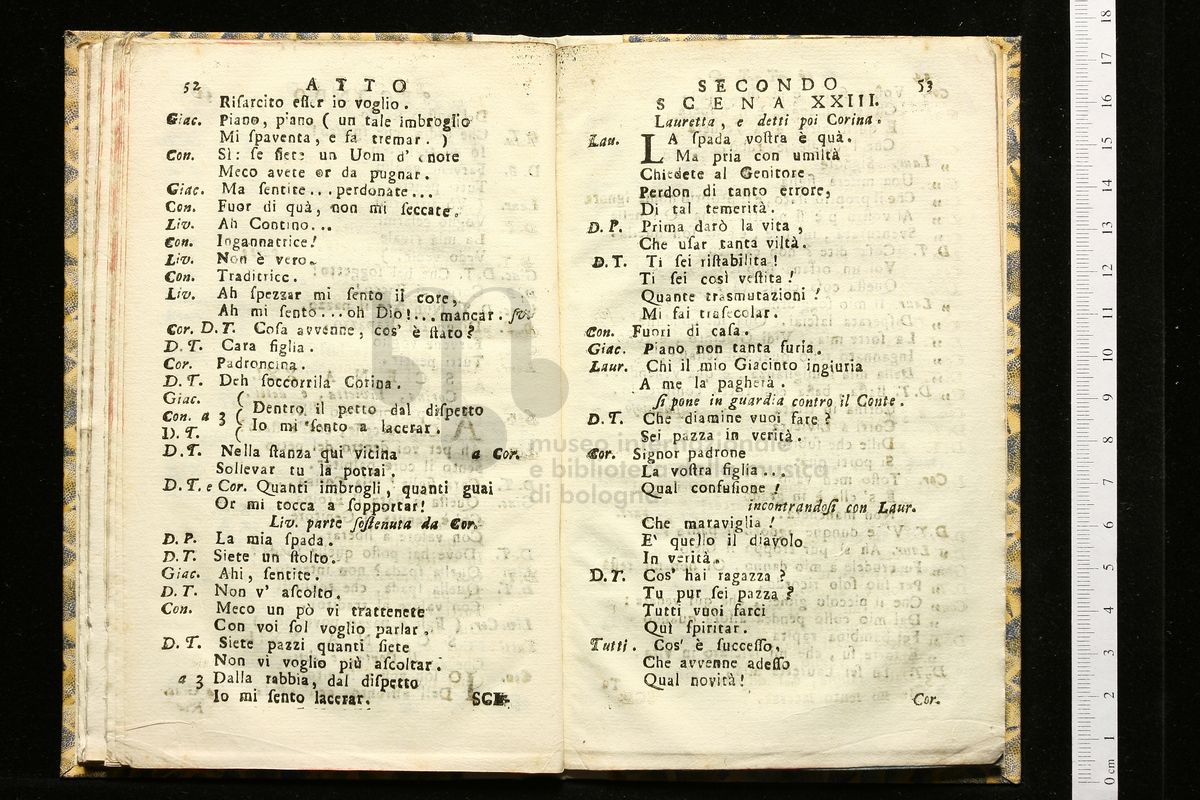 52 ATTO
Riſarcito eſſer io voglio.
Giac. Piano, piano ( un tale imbroglio
Mi ſpaventa, e fa tremar. )
Con. Sì: ſe ſiete un Uom d' onore
Meco avete or da pugnar.
Giac. Ma ſentite... perdonate...
Con. Fuor di quà, non mi ſeccate.
Liv. Ah Contino...
Con. Ingannatrice!
Liv. Non è vero.
Con. Traditrice.
Liv. Ah ſpezzar mi ſento il core,
Ah mi ſento... oh Dio!... mancar.
Cor. D.T. Coſa avvenne, cos' è ſtato?
D. T. Cara figlia.
Cor. Padroncina.
D. T. Deh ſoccorrila Corina.
Giac. (
Con. a 3 ( Dentro il petto dal diſpetto
( Io mi ſento a lacerar.
D. T. (
D. T. Nella ſtanza quì vicina a Cor.
Sollevar tu la potrai
D. T. e Cor. Quanti imbrogli, quanti guai
Or mi tocca a ſopportar!
Liv. parte ſoſtenuta da Cor.
D. P. La mia ſpada.
D. T. Siete un ſtolto.
Giac. Ahi, ſentite.
D. T. Non v' aſcolto.
Con. Meco un pò vi trattenete
Con voi ſol voglio parlar,
D. T. Siete pazzi quanti ſiete
Non vi voglio più aſcoltar.
a 3 Dalla rabbia, dal diſpetto
Io mi ſento lacerar.
SCE-
SECONDO 53
SCENA XXIII.
Lauretta, e detti poi Corina.
Lau. LA ſpada voſtra è quà.
Ma pria con umiltà
Chiedete al Genitore
Perdon di tanto errore,
Di tal temerità.
D. P. Prima darò la vita,
Che uſar tanta viltà.
D. T. Ti ſei riſtabilita!
Ti ſei così veſtita!
Quante trasmutazioni!
Mi fai traſecolar.
Con. Fuori di caſa.
Giac. Piano non tanta furia.
Laur. Chi il mio Giacinto ingiuria
A me la pagherà.
ſi pone in guardia contro il Conte.
D. T. Che diamine vuoi fare?
Sei pazza in verità.
Cor. Signor padrone
La voſtra figlia...
Qual confuſione!
incontrandoſi con Laur.
Che maraviglia!
E' quello il diavolo
In verità.
D. T. Cos' hai ragazza?
Tu pur ſei pazza?
Tutti vuoi farci
Quì ſpiritar.
Tutti. Cos' è ſucceſſo,
Che avvenne adeſſo
Qual novità!
Cor.
museo internazionale
e biblioteca della musica
di bologna